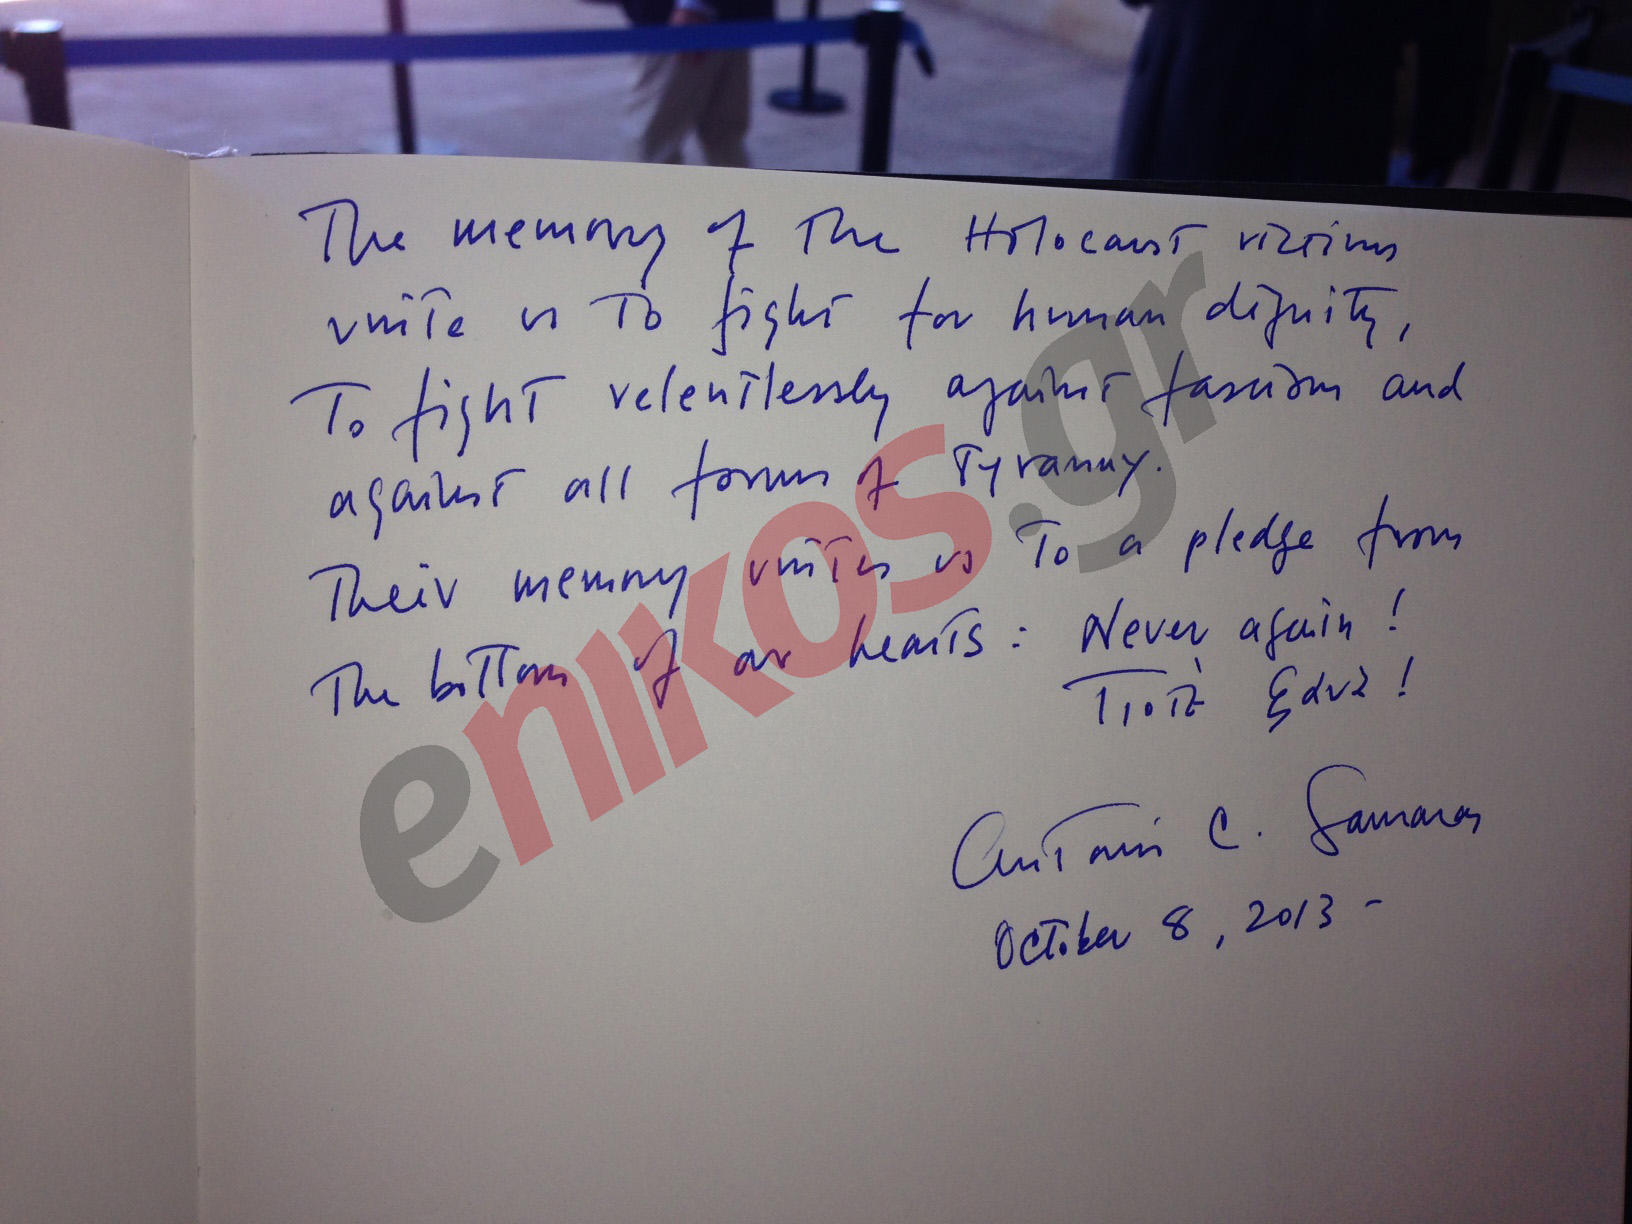 The memory of the Holocaust victims
unite us to fight for human dignity,
to fight relentlessly against fascism and
against all forms of tyranny.
Their memory unites us to a pledge from
the bottom of our hearts: Never again!
Ποτέ ξανά!
Antonis C. Samaras
October 8, 2013 -
enikos.gr